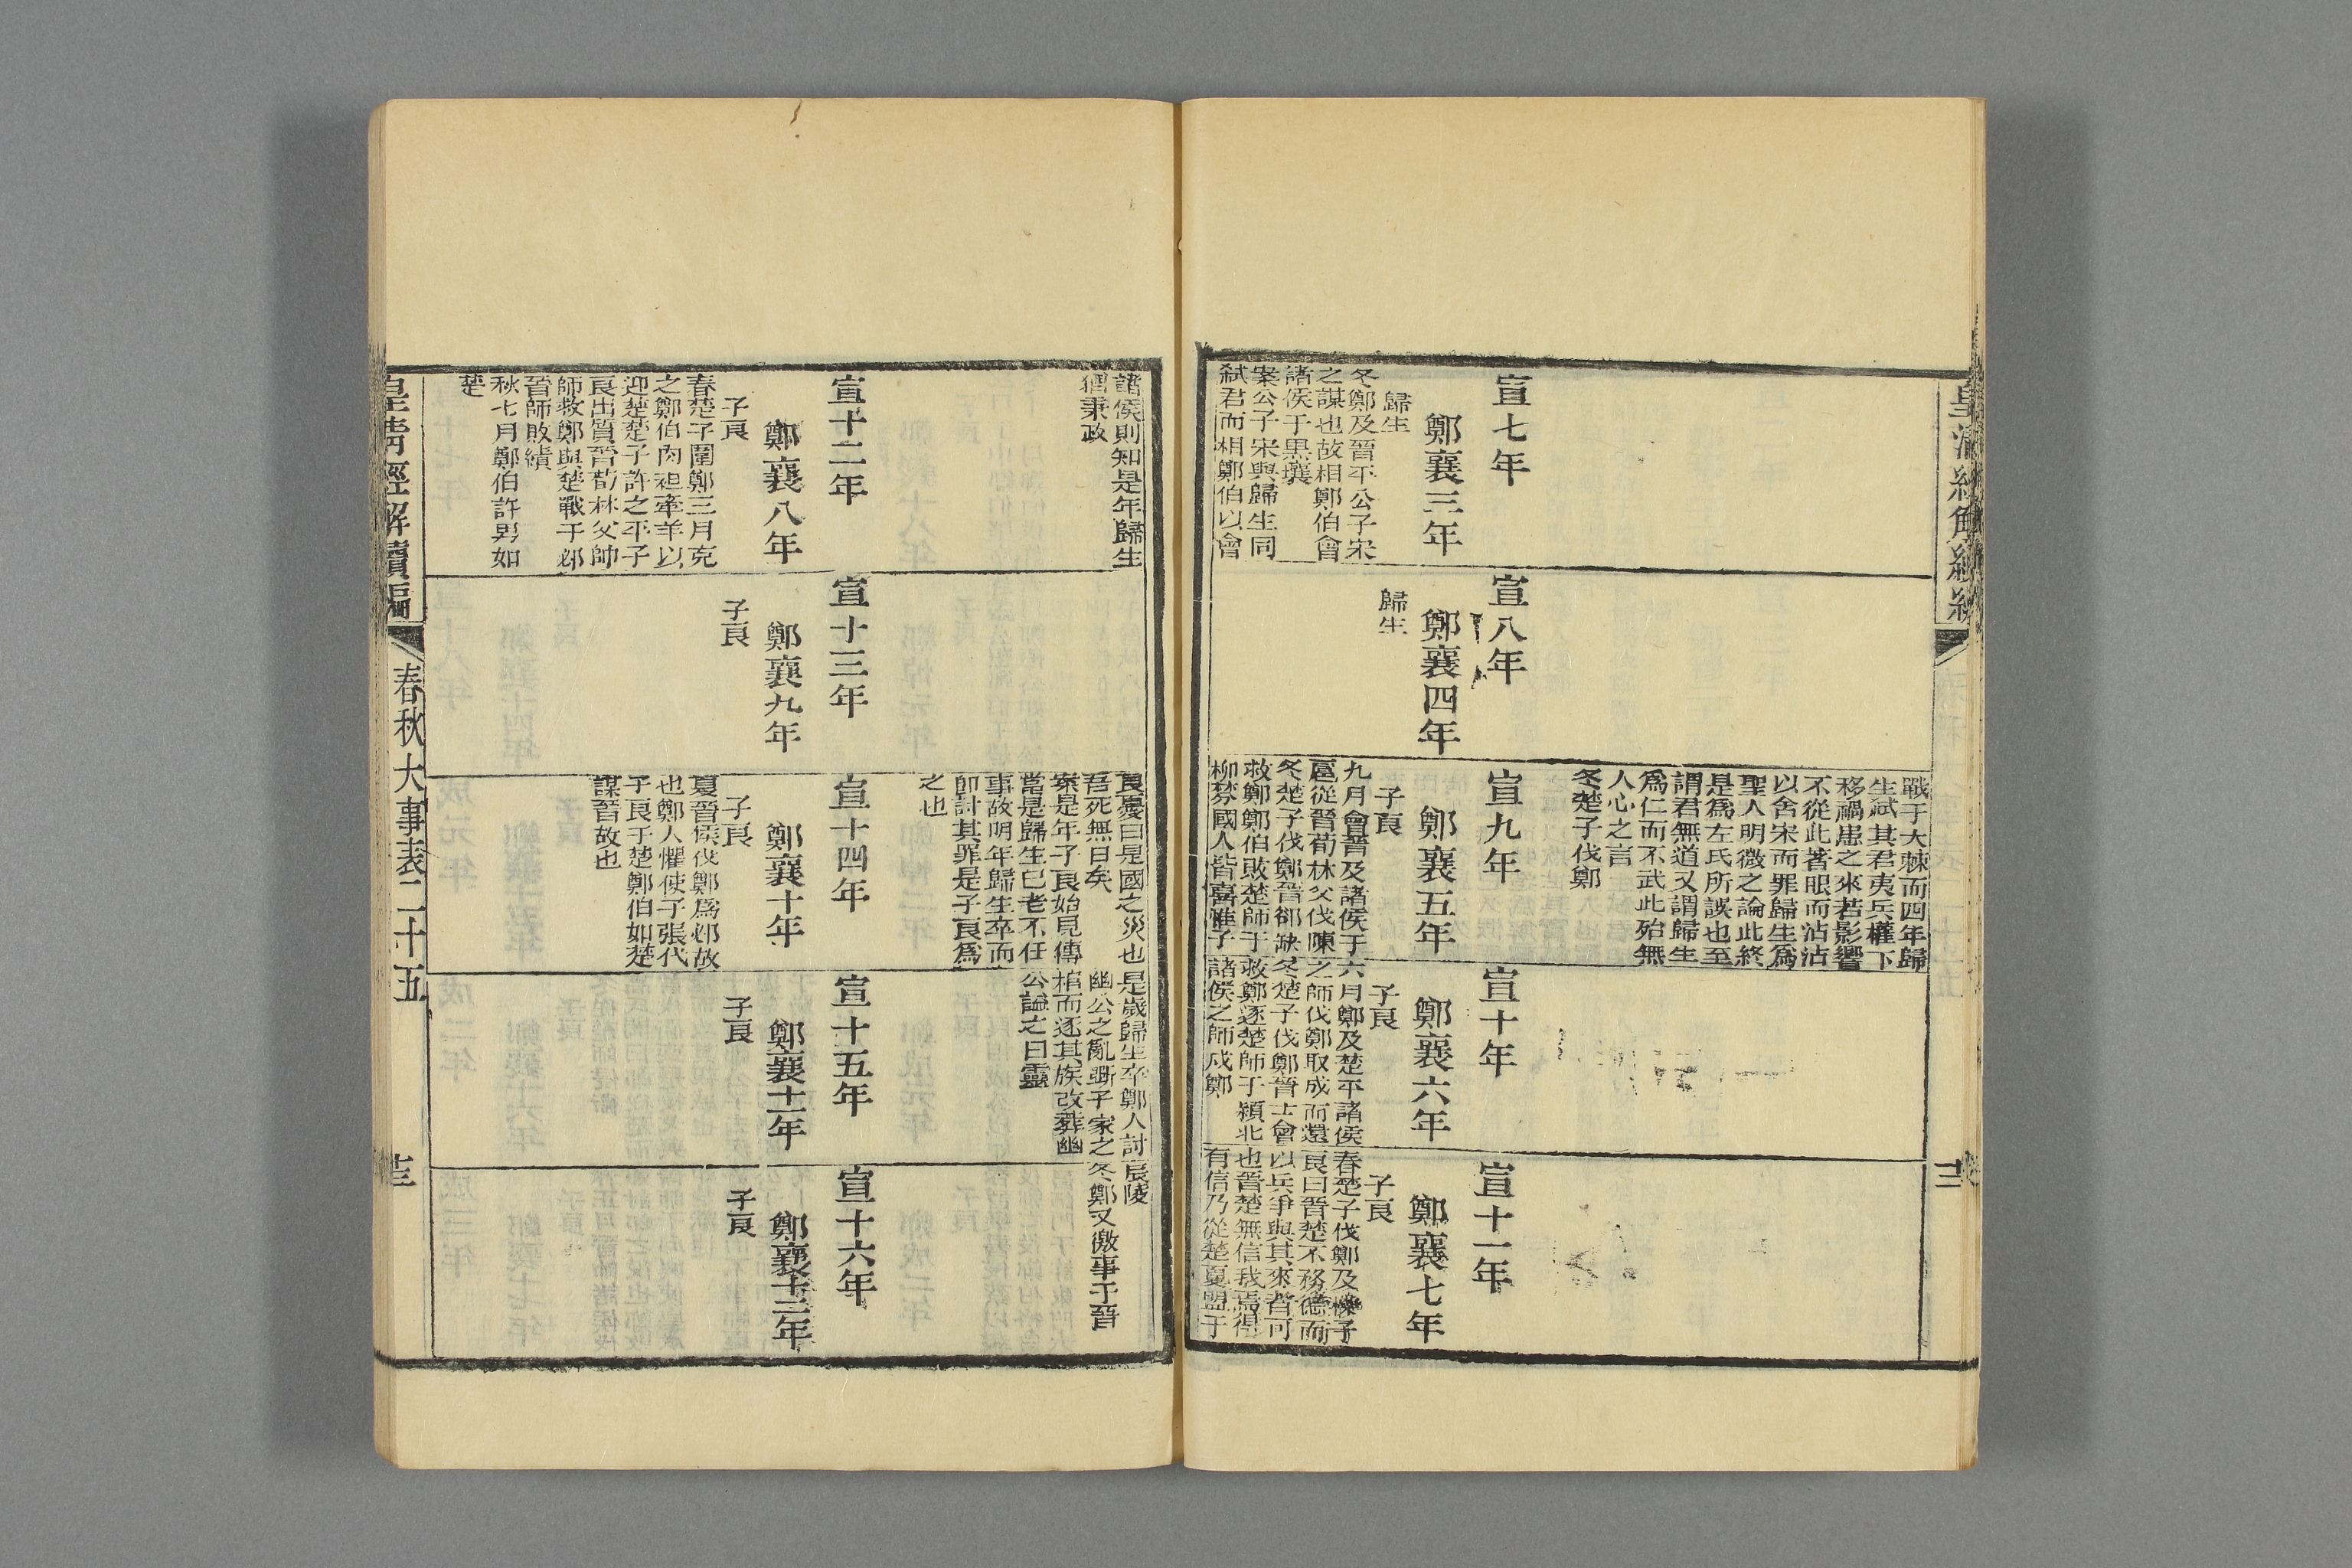 皇清經解續編
戰于大棘而四年歸
生弑其君夷兵權下
移禍患之來若影響
不從此著眼而沾沾
以舍宋而罪歸生爲
聖人明微之論此終
是爲左氏所誤也至
謂君無道又謂歸生
爲仁而不武此殆無
人心之言
冬楚子伐鄭
宣七年
鄭襄三年
歸生
冬鄭及晉平公子宋
之謀也故相鄭伯會
諸侯于黑壤
案公子宋與歸生同
弑君而相鄭伯以會
宣八年
鄭襄四年
歸生
宣九年
鄭襄五年
子良
九月會晉及諸侯于
扈從晉荀林父伐陳
冬楚子伐鄭晉郤缺
救鄭鄭伯敗楚師于
柳棼國人皆喜惟子
宣十年
鄭襄六年
子良
六月鄭及楚平諸侯
之師伐鄭取成而還
冬楚子伐鄭晉士會
救鄭逐楚師于潁北
諸侯之師戍鄭
宣十一年
鄭襄七年
子良
春楚子伐鄭及櫟子
良曰晉楚不務德而
以兵爭與其來者可
也晉楚無信我焉得
有信乃從楚夏盟于
諸侯則知是年歸生
猶秉政
良憂曰是國之災也
吾死無日矣
案是年子良始見傳
當是歸生已老不任
事故明年歸生卒而
卽討其罪是子良爲
之也
是歲歸生卒鄭人討
幽公之亂斲子家之
棺而逐其族改葬幽
公諡之曰靈
辰陵
冬鄭又徼事于晉
宣十二年
鄭襄八年
子良
春楚子圍鄭三月克
之鄭伯肉袒牽羊以
迎楚楚子許之平子
良出質晉荀林父帥
師救鄭與楚戰于邲
晉師敗績
秋七月鄭伯許男如
楚
宣十三年
鄭襄九年
子良
宣十四年
鄭襄十年
子良
夏晉侯伐鄭爲邲故
也鄭人懼使子張代
子良于楚鄭伯如楚
謀晉故也
宣十五年
鄭襄十一年
子良
宣十六年
鄭襄十二年
子良
皇淸經解續編
春秋大事表二十五